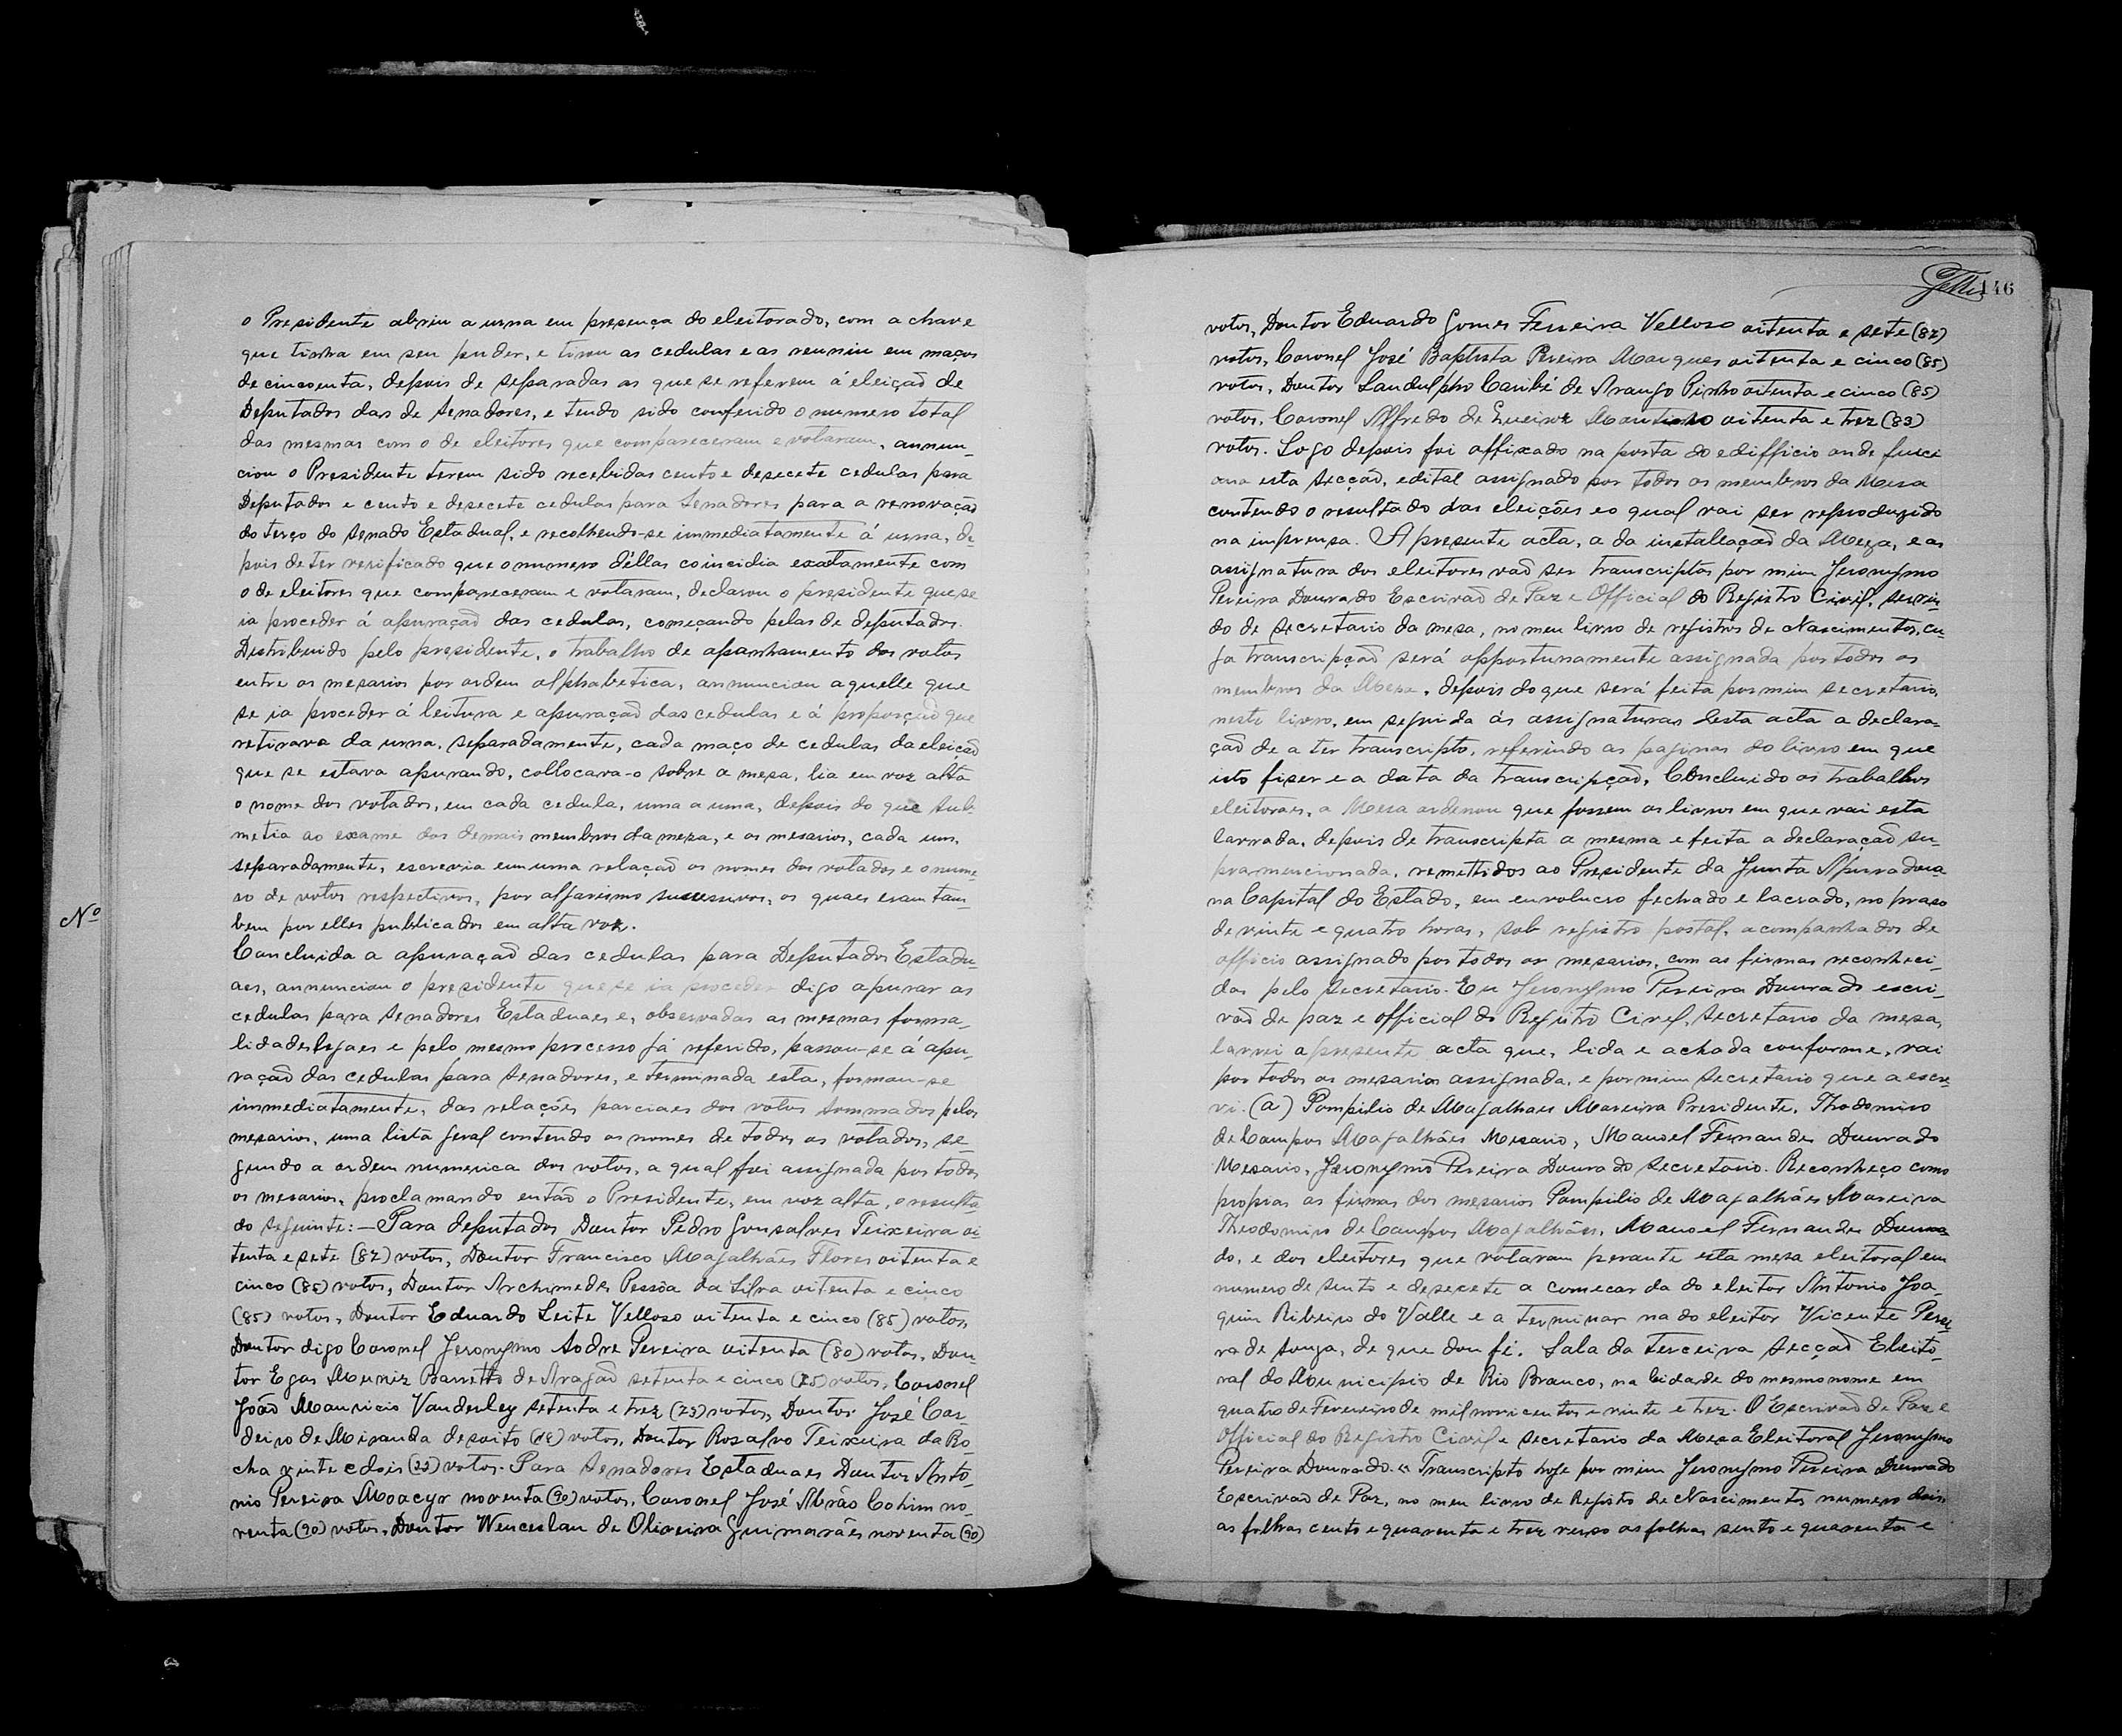 o Presidente abriu a urna em presença do eleitorado, com a chave
que tinha em seu poder, e tirou as cedulas e as reuniu em maços
de cincoenta, depois de separadas as que se referem á eleição de
Deputados das de Senadores, e tendo sido conferido o numero total
das mesmas com o de eleitores que compareceram e votaram, annun-
ciou o Presidente terem sido recebidas cento e desecete cedulas para
Deputados e cento e desecete cedulas para Senadores para a renovação
do terço do Senado Estadual, e recolhendo-se immediatamente á urna, de-
pois de ter verificado que o numero d'ellas coincidia exatamente com
o de eleitores que compareceram e votaram, declarou o presidente que se
ia proceder á apuração das cedulas, começando pelas de deputados.
Destribuido pelo presidente, o trabalho de apanhamento dos votos
entre os mesarios por ordem alphabetica, annunciou aquelle que
se ia proceder á leitura e apuração das cedulas e á proporção que
retirava da urna, separadamente, cada maço de cedulas da eleição
que se estava apurando, collocava-o sobre a mesa, lia em voz alta
o nome dos votados, em cada cedula, uma a uma, depois do que sub-
metia ao exame dos demais membros da meza, e os mesarios, cada um,
separadamente, escrevia em uma relação os nomes dos votados e o nume-
ro de votos respectivos, por algarismo sucessivos, os quaes eram tam-
bem por elles publicados em alta voz.
Nº
Concluida a apuração das cedulas para Deputados Estadu-
aes, annunciou o presidente que se ia proceder digo apurar as
cedulas para Senadores Estaduaes e, observadas as mesmas forma-
lidades legaes e pelo mesmo processo já referido, passou-se á apu-
ração das cedulas para Senadores, e terminada esta, formou-se
immediatamente, das relações parciaes dos votos sommados pelos
mesarios, uma lista geral contendo os nomes de todos os votados, se-
gundo a ordem numerica dos votos, a qual foi assignada por todos
os mesarios, proclamando então o Presidente, em voz alta, o resulta
do seguinte: — Para deputados Doutor Pedro Gonsalves Teixeira oi-
tenta e sete (87) votos, Doutor Francisco Magalhães Flores oitenta e
cinco (85) votos, Doutor Archimedes Pessôa da Silva oitenta e cinco
(85) votos, Doutor Eduardo Leite Velloso oitenta e cinco (85) votos,
Doutor digo Coronel Jeronymo Sodre Pereira oitenta (80) votos, Dou-
tor Egas Muniz Barretto de Aragão setenta e cinco (75) votos, Coronel
João Mauricio Vanderley setenta e trez (73) votos, Doutor José Cor-
deiro de Miranda desoito (18) votos, Doutor Rosalvo Teixeira da Ro-
cha vinte e dois (22) votos. Para Senadores Estaduaes Doutor Anto-
nio Pereira Moacyr noventa (90) votos, Coronel José Abrão Cohim no-
venta (90) votos, Doutor Wenceslau de Oliveira Guimarães noventa (90)
146
votos, Doutor Eduardo Gomes Ferreira Velloso oitenta e sete (87)
votos, Coronel José Baptista Pereira Marques oitenta e cinco (85)
votos, Doutor Landulpho Caribé de Araujo Pinho oitenta e cinco (85)
votos, Coronel Alfredo de Queiroz Martinho oitenta e trez (83)
votos. Logo depois foi affixado na porta do edifficio onde funci
ona esta Secção, edital assignado por todos os membros da Mesa
contendo o resultado das eleições e o qual vai ser reproduzido
na imprensa. A presente acta, a da installação da Meza, e as
assignatura dos eleitores vaõ ser transcriptos por mim Jeronymo
Pereira Dourado Escrivaõ de Paz e Official do Registro Civil, servin-
do de secretario da mesa, no meu livro de registros de Nascimentos, cu-
ja transcripção será opportunamente assignada por todos os
membros da Mesa, depois do que será feita por mim secretario,
neste livro, em seguida ás assignaturas desta acta a declara-
ção de a ter transcripto, referindo as paginas do livro em que
isto fizer e a data da transcripção. Concluido os trabalhos
eleitoraes, a Mesa ordenou que fossem os livros em que vai esta
lavrada, depois de transcripta a mesma e feita a declaração su-
pramencionada, remettidos ao Presidente da Junta Apuradora
na Capital do Estado, em envolucro fechado e lacrado, no praso
de vinte e quatro horas, sob registro postal, acompanhados de
officio assignado por todos os mesarios, com as firmas reconheci-
das pelo Secretario. Eu Jeronymo Pereira Dourado escri-
vaõ de paz e official do Registro Civel, secretario da mesa,
lavrei a presente acta que, lida e achada conforme, vai
por todos os mesarios assignada, e por mim secretario que a escre-
vi. (a) Pompilio de Magalhaes Moreira Presidente, Theodomiro
de Campos Magalhães Mesario, Manoel Fernandes Dourado
Mesario, Jeronymo Pereira Dourado Secretario. Reconheço como
proprias as firmas dos mesarios Pompilio de Magalhães Moreira
Theodomiro de Campos Magalhães, Manoel Fernandes Doura-
do, e dos eleitores que votaram perante esta mesa eleitoral em
numero de sento e desecete a comecar da do eleitor Antonio Joa-
quim Ribeiro do Valle e a terminar na do eleitor Vicente Perei
ra de Souza, de que dou fé. Sala da Terceira Secção Eleito-
ral do Município de Rio Branco, na Cidade do mesmo nome em
quatro de Fevereiro de mil novicentos e vinte e trez. O Escrivaõ de Paz e
Official do Registro Civil e Secretario da Mesa Eleitoral Jeronymo
Pereira Dourado. « Transcripto hoje por mim Jeronymo Pereira Dourado
Escrivaõ de Paz, no meu livro de Registo de Nascimentos numero dois
as folhas cento e quarenta e trez verso as folhas sento e quarenta e